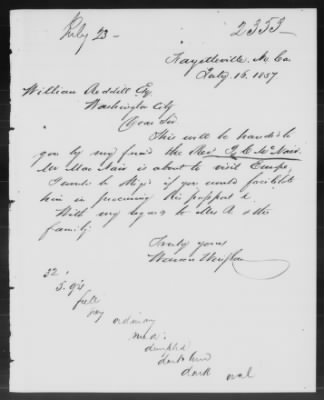 July 23 -
2353 -
Fayetteville, N. Ca
July 16. 1857
William
Washington City
Dear Sir
This will be handed to
you by my friend the Rev. McNair.
Mr MacNair is about to visit Europe
I would be if you would facilitate
him in procuring his passport &.
With my regards to Mrs A & the
family
Truly yours
Warren Winslow
32
5. 9½
full
ordinary
med:
dimpled
dark
dark oval